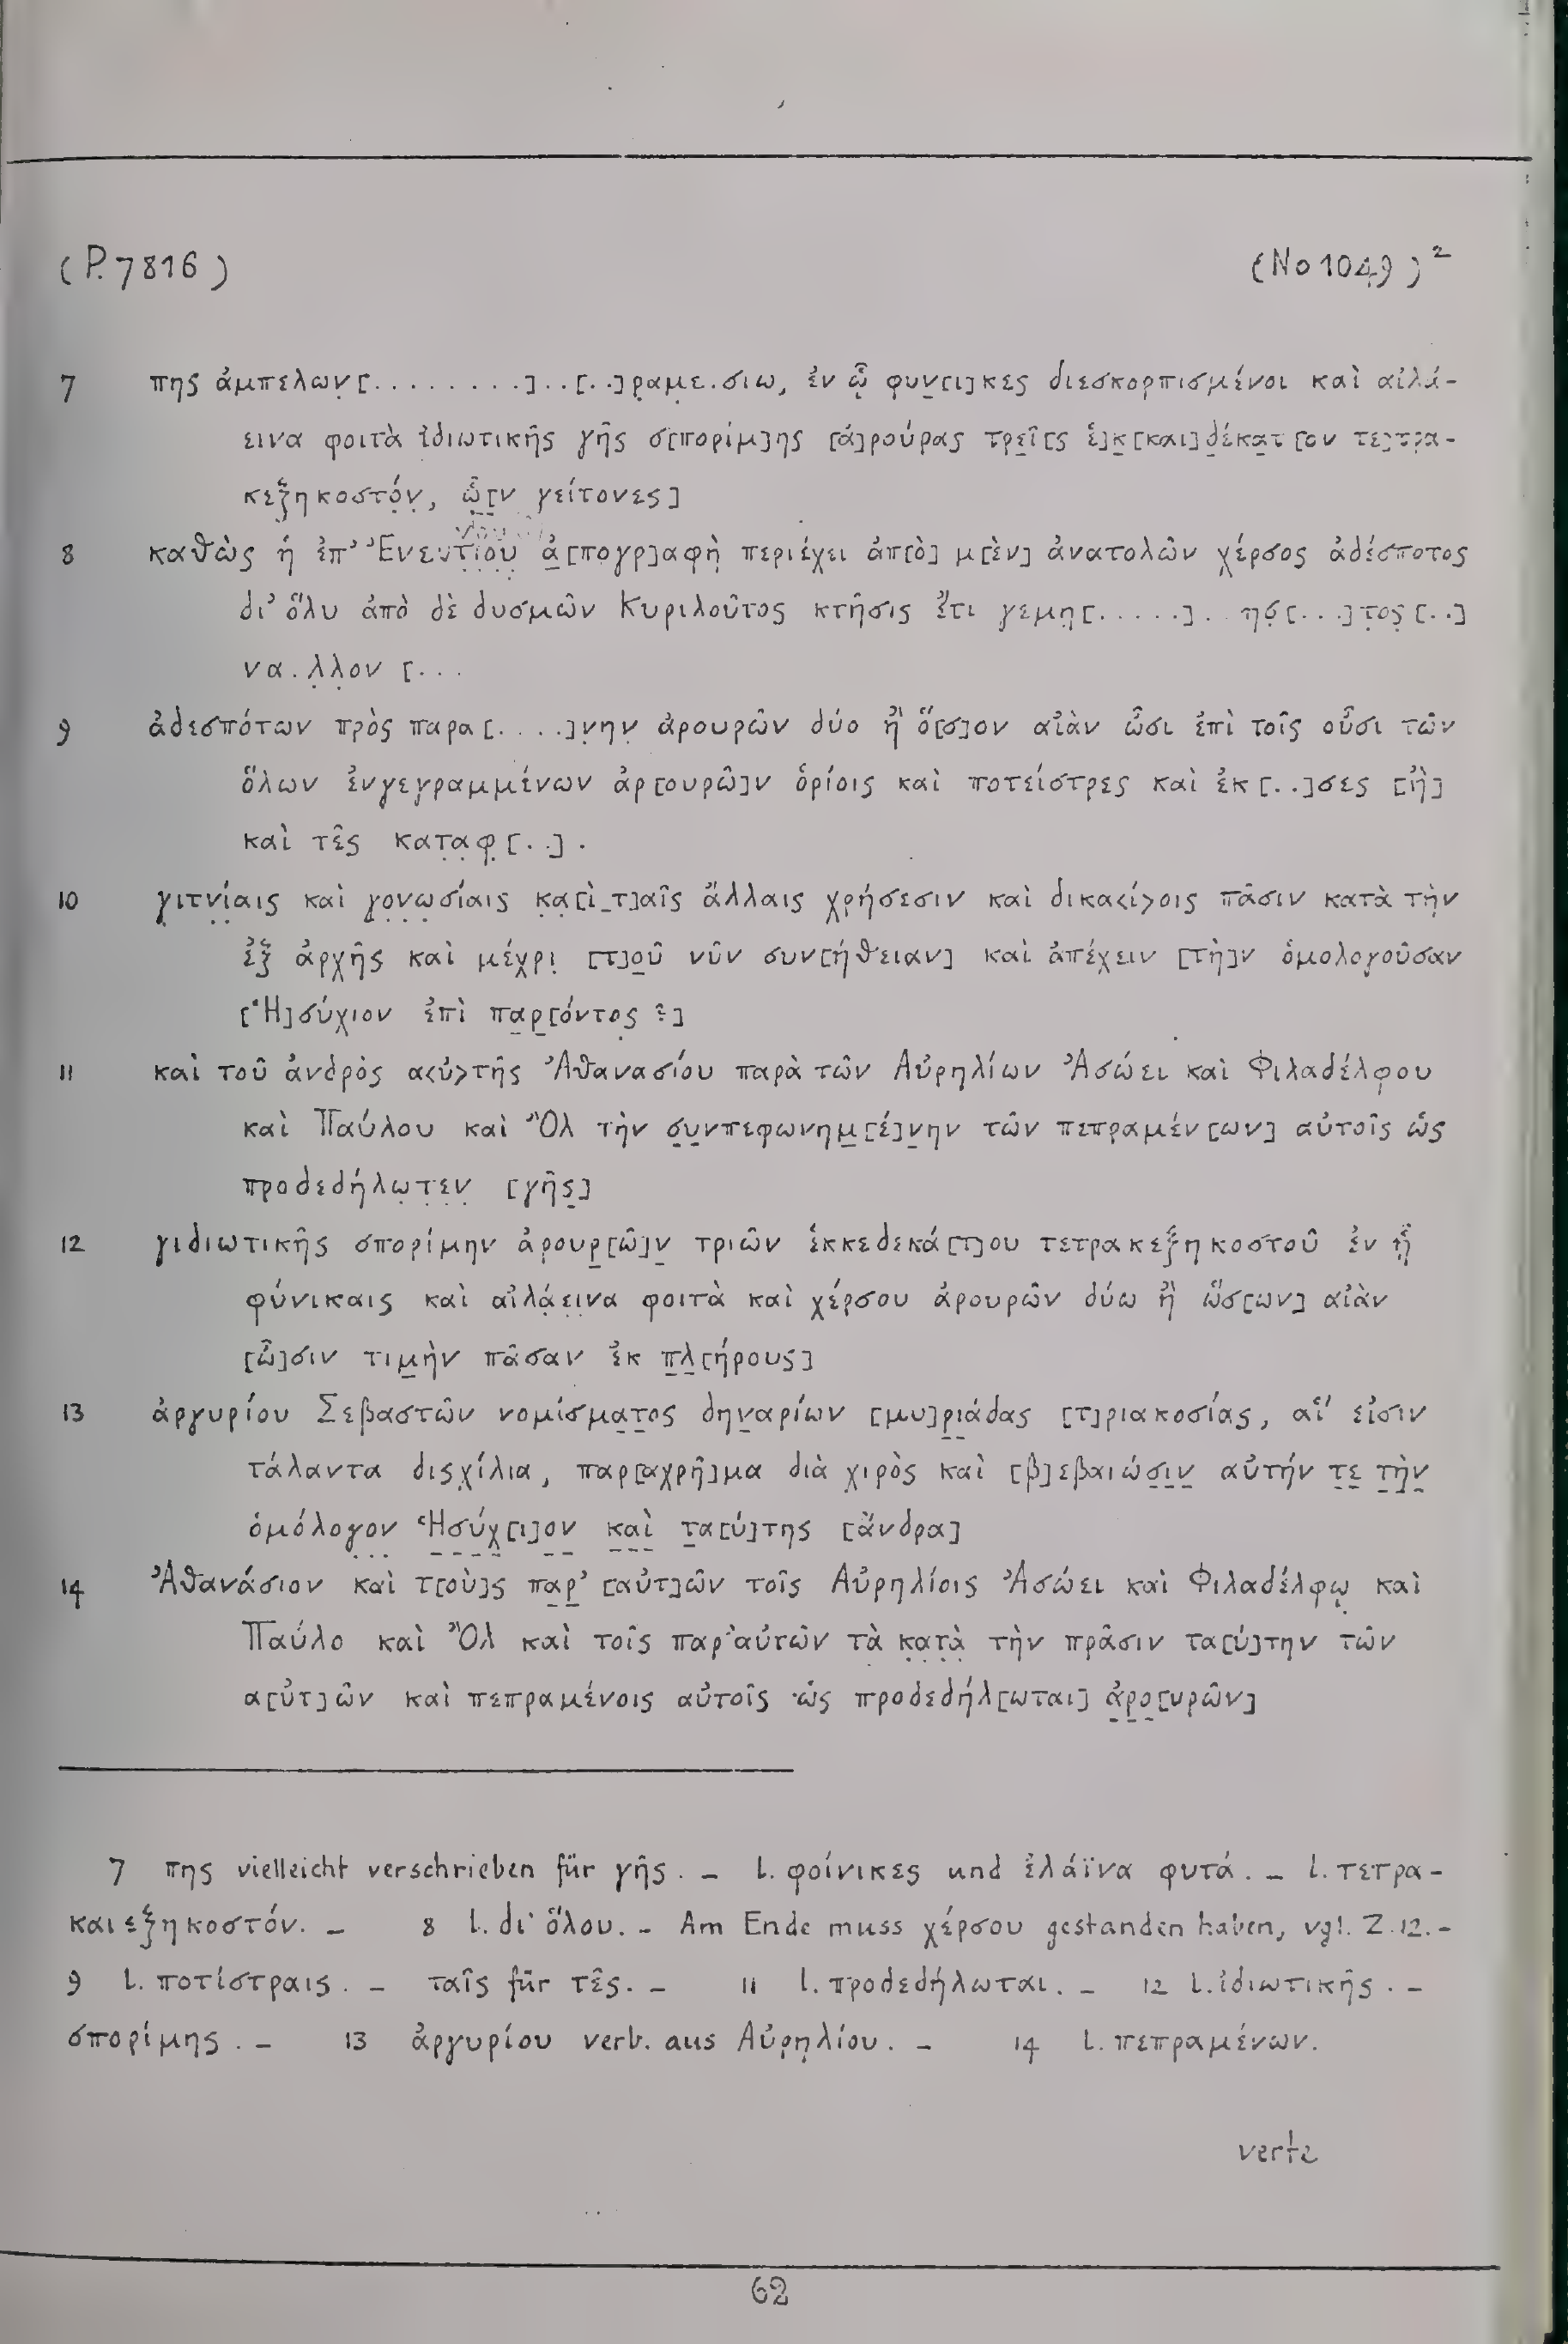 (P. 7816) (No 1049)²
7 πης ἀμπελων̣[.........]..[..]ρ̣αμε̣.σιω, ἐν ᾧ φυν̣[ι]κες διεσκορπισμένοι καὶ αἰλά-
εινα φοιτὰ ἰδιωτικῆς γῆς σ[πορίμ]ης [ἀ]ρούρας τρε̣ῖ[ς ἑ]κ̣[και]δ̣έκα̣τ[ον τε]τρα-
κεξηκοστό̣ν̣, ὧ̣[ν γείτονες]
8 καθὼς ἡ ἐπ’ Ἐνεντ̣ί̣ο̣υ̣ ἀ̣[πογρ]αφὴ̣ περιέχει ἀπ[ὸ] μ[ὲν] ἀνατολῶν χέρσος ἀδέσποτος
δι’ ὅλυ ἀπὸ δὲ δυσμῶν Κυριλοῦτος κτῆσις ἔτι γεμη̣[.....]..ησ̣[...]τ̣ος̣[..]
να.λ̣λ̣ον [...
9 ἀδεσπότων πρὸς παρα[....]ν̣ην̣ ἀρουρῶν δύο ἢ ὅ[σ]ον αἰὰν ὦσι ἐπὶ τοῖς οὖσι τῶν
ὅλων ἐνγεγ̣ραμμένων ἀρ̣[ουρῶ]ν ὁρίοις καὶ ποτείστρες καὶ ἐκ[..]σες [ἢ]
καὶ τε͂ς κατ̣α̣φ̣[..].
10 γ̣ιτν̣ί̣αις καὶ γο̣ν̣ω̣σίαις κ̣α̣[ὶ τ]αῖς ἄλλαις χρήσεσιν καὶ δικα<ί>οις πᾶσιν κατὰ τὴν
ἐξ ἀρχῆς καὶ μέχρι̣ [τ]ο̣ῦ νῦν συν[ήθειαν] καὶ ἀπέχειν [τὴ]ν ὁμολογοῦσαν
[Ἡ]σύχιον ἐπὶ πα̣ρ̣[όντος ?]
11 καὶ τοῦ ἀνδρὸς α<ὐ>τῆς Ἀθανασίου παρὰ τῶν Αὐρηλίων Ἀσώει καὶ Φιλαδέλφου
καὶ Παύλου καὶ Ὂλ τὴν σ̣υ̣νπεφωνημ̣[έ]ν̣ην τῶν πεπραμέν[ων] αὐτοῖς ὡς
προδεδήλω̣τ̣ε̣ν̣ [γῆς]
12 γιδιωτικῆς σπορίμην ἀρουρ̣[ῶ]ν̣ τριῶν ἑκκεδεκά[τ]ου τετρακεξηκοστοῦ ἐν ᾗ
φύνικαις καὶ αἰλά̣ει̣να φοιτὰ καὶ χέρσου ἀρουρῶν δύω ἢ ὥσ[ων] αἰὰν
[ὦ]σιν τιμ̣ὴν πᾶσαν ἐκ π̣λ̣[ήρους]
13 ἀργυρίου Σεβαστῶν νομίσμα̣τ̣ος δην̣αρίων [μυ]ρ̣ι̣άδας [τ]ριακοσίας, αἵ εἰσιν
τάλαντα δισχίλια, παρ[αχρῆ]μα διὰ χιρὸς καὶ [β]εβαιώσ̣ι̣ν̣ αὐτήν τ̣ε̣ τ̣ὴ̣ν̣
ὁμόλο̣γ̣ο̣ν Ἡ̣σ̣ύ̣χ̣[ι]ο̣ν̣ κ̣α̣ὶ̣ τ̣α[ύ]της [ἄνδρα]
14 Ἀθανάσιον καὶ τ[οὺ]ς πα̣ρ̣’ [αὐτ]ῶν τοῖς Αὐρηλίοις Ἀσώει καὶ Φιλαδέλφω̣ καὶ
Παύλο καὶ Ὂλ καὶ τοῖς παρ’αὐτῶν τὰ κ̣α̣τ̣ὰ̣ τὴν πρᾶσιν τα[ύ]την τῶν
α[ὐτ]ῶν καὶ πεπραμένοις αὐτοῖς ὡς προδεδήλ[ωται] ἀ̣ρ̣ο̣[υρῶν]
7 πης vielleicht verschrieben für γῆς. – l. φοίνικες und ἐλάϊνα φυτά. – l. τετρα-
καιεξηκοστόν. – 8 l. δι’ ὅλου. – Am Ende muss χέρσου gestanden haben, vgl. Z. 12. –
9 l. ποτίστραις. – ταῖς für τε͂ς. – 11 l. προδεδήλωται. – 12 l. ἰδιωτικῆς. –
σπορίμης. – 13 ἀργυρίου verb. aus Αὐρ̣η̣λίου. – 14 l. πεπραμένων.
verte
62